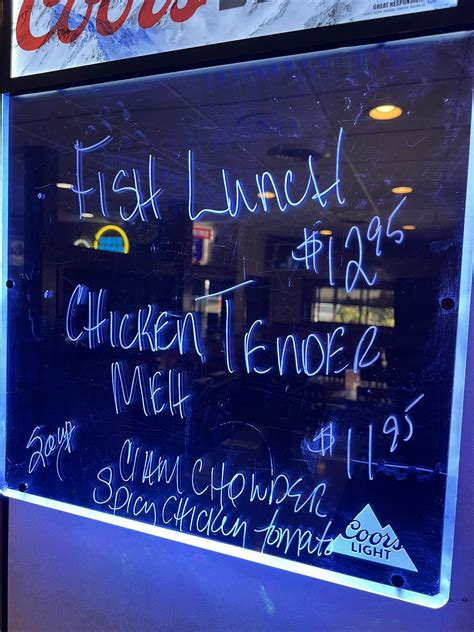 Coors
GREAT RESPONSIBLY
FISH LUNCH
$12.95
CHICKEN TENDER
MELT
$11.95
Soup
CLAM CHOWDER
SPICY CHICKEN tomato
Coors
LIGHT